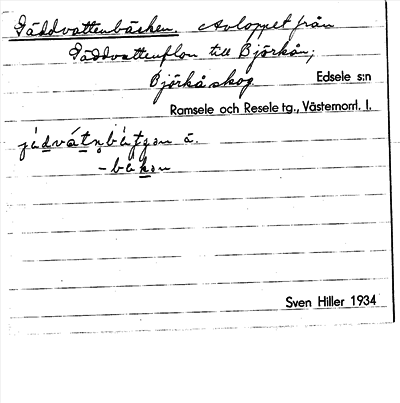 Gäddvattenbäcken. Avloppet från
Gäddvattenflon till Björkån;
Björkå skog. Edsele s:n
Ramsele och Resele tg., Västernorrl. l.
jádvátn̥bä́tɟən ä.
-bäkən
Sven Hiller 1934